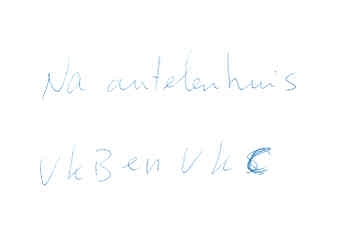 Na antelenhuis
VkB en VkC